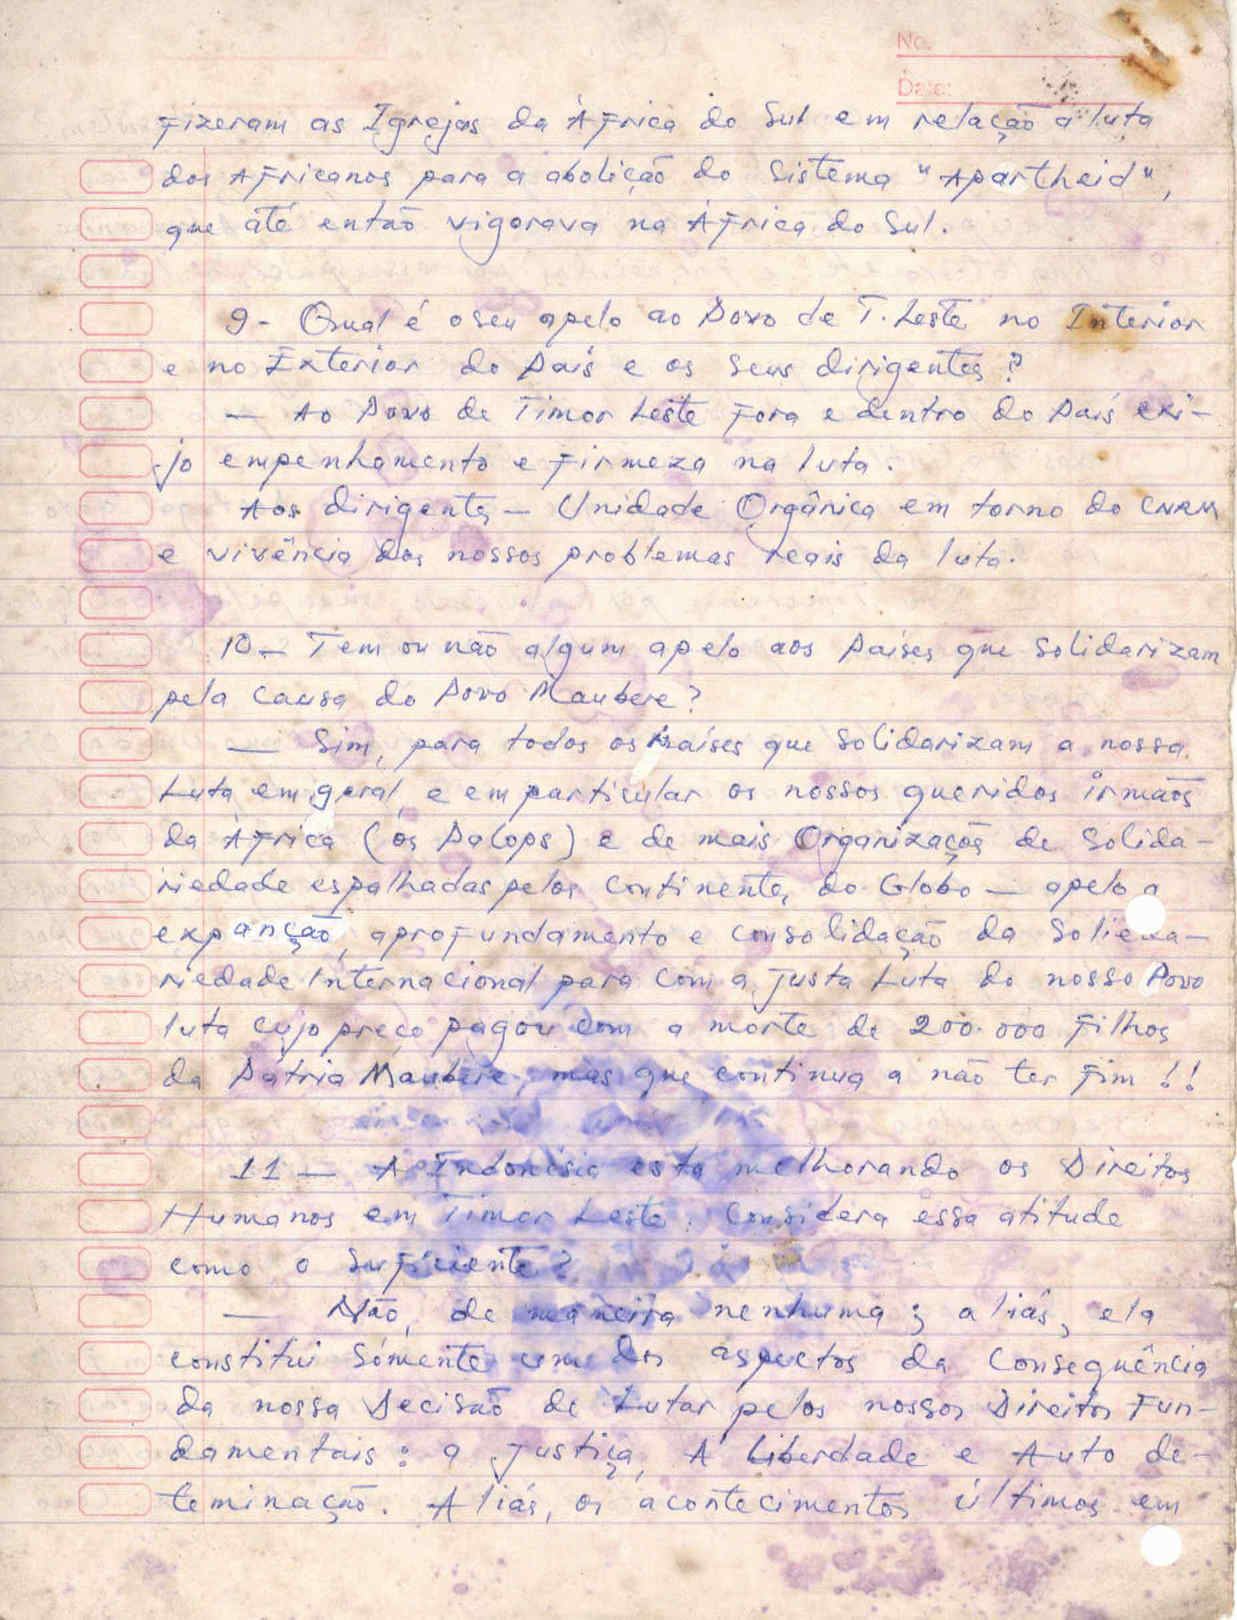 No.
Date:
fizeram as Igrejas da África do Sul em relação a luta
dos Africanos para a abolição do Sistema "Apartheid",
que até então vigorava na África do Sul.
9- Qual é o seu apelo ao Povo de T. Leste no Interior
e no Exterior do País e os seus dirigentes?
— Ao Povo de Timor Leste fora e dentro do País exi-
jo empenhamento e firmeza na luta.
Aos dirigentes — Unidade Orgânica em torno do CNRM
e vivência dos nossos problemas reais da luta.
10- Tem ou não algum apelo aos Países que Solidarizam
pela causa do Povo Maubere?
— Sim, para todos os Países que Solidarizam a nossa
Luta em geral, e em particular os nossos queridos irmãos
da África (os Palops) e de mais Organizações de Solida-
riedade espalhadas pelos continentes do Globo — apelo a
expanção, aprofundamento e consolidação da
riedade Internacional para com a justa Luta do nosso Povo
luta cujo preço pagou com a morte de 200.000 Filhos
da Pátria Maubere, mas que continua a não ter fim!!
11 — A Indonésia está melhorando os Direitos
Humanos em Timor Leste. Considera essa atitude
como o suficiente?
— Não, de maneira nenhuma; aliás, ela
constitui sómente um dos aspectos da Consequência
da nossa Decisão de Lutar pelos nossos Direitos Fun-
damentais: a Justiça, A Liberdade e Auto de-
teminação. Aliás, os acontecimentos últimos em